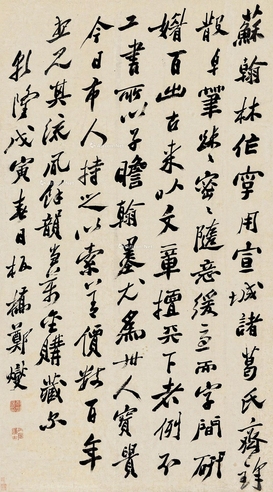 蘇翰林作字用宣城諸葛氏齊鋒
散卓筆疎疎密密隨意緩急而字間妍
媚百出古来以文章擅天下者例不
工書所以子瞻翰墨尤為世人寶貴
今日市人持之以索善價數百年
後見其流風餘韻當萬金購藏爾
乾隆戊寅春日板橋鄭燮